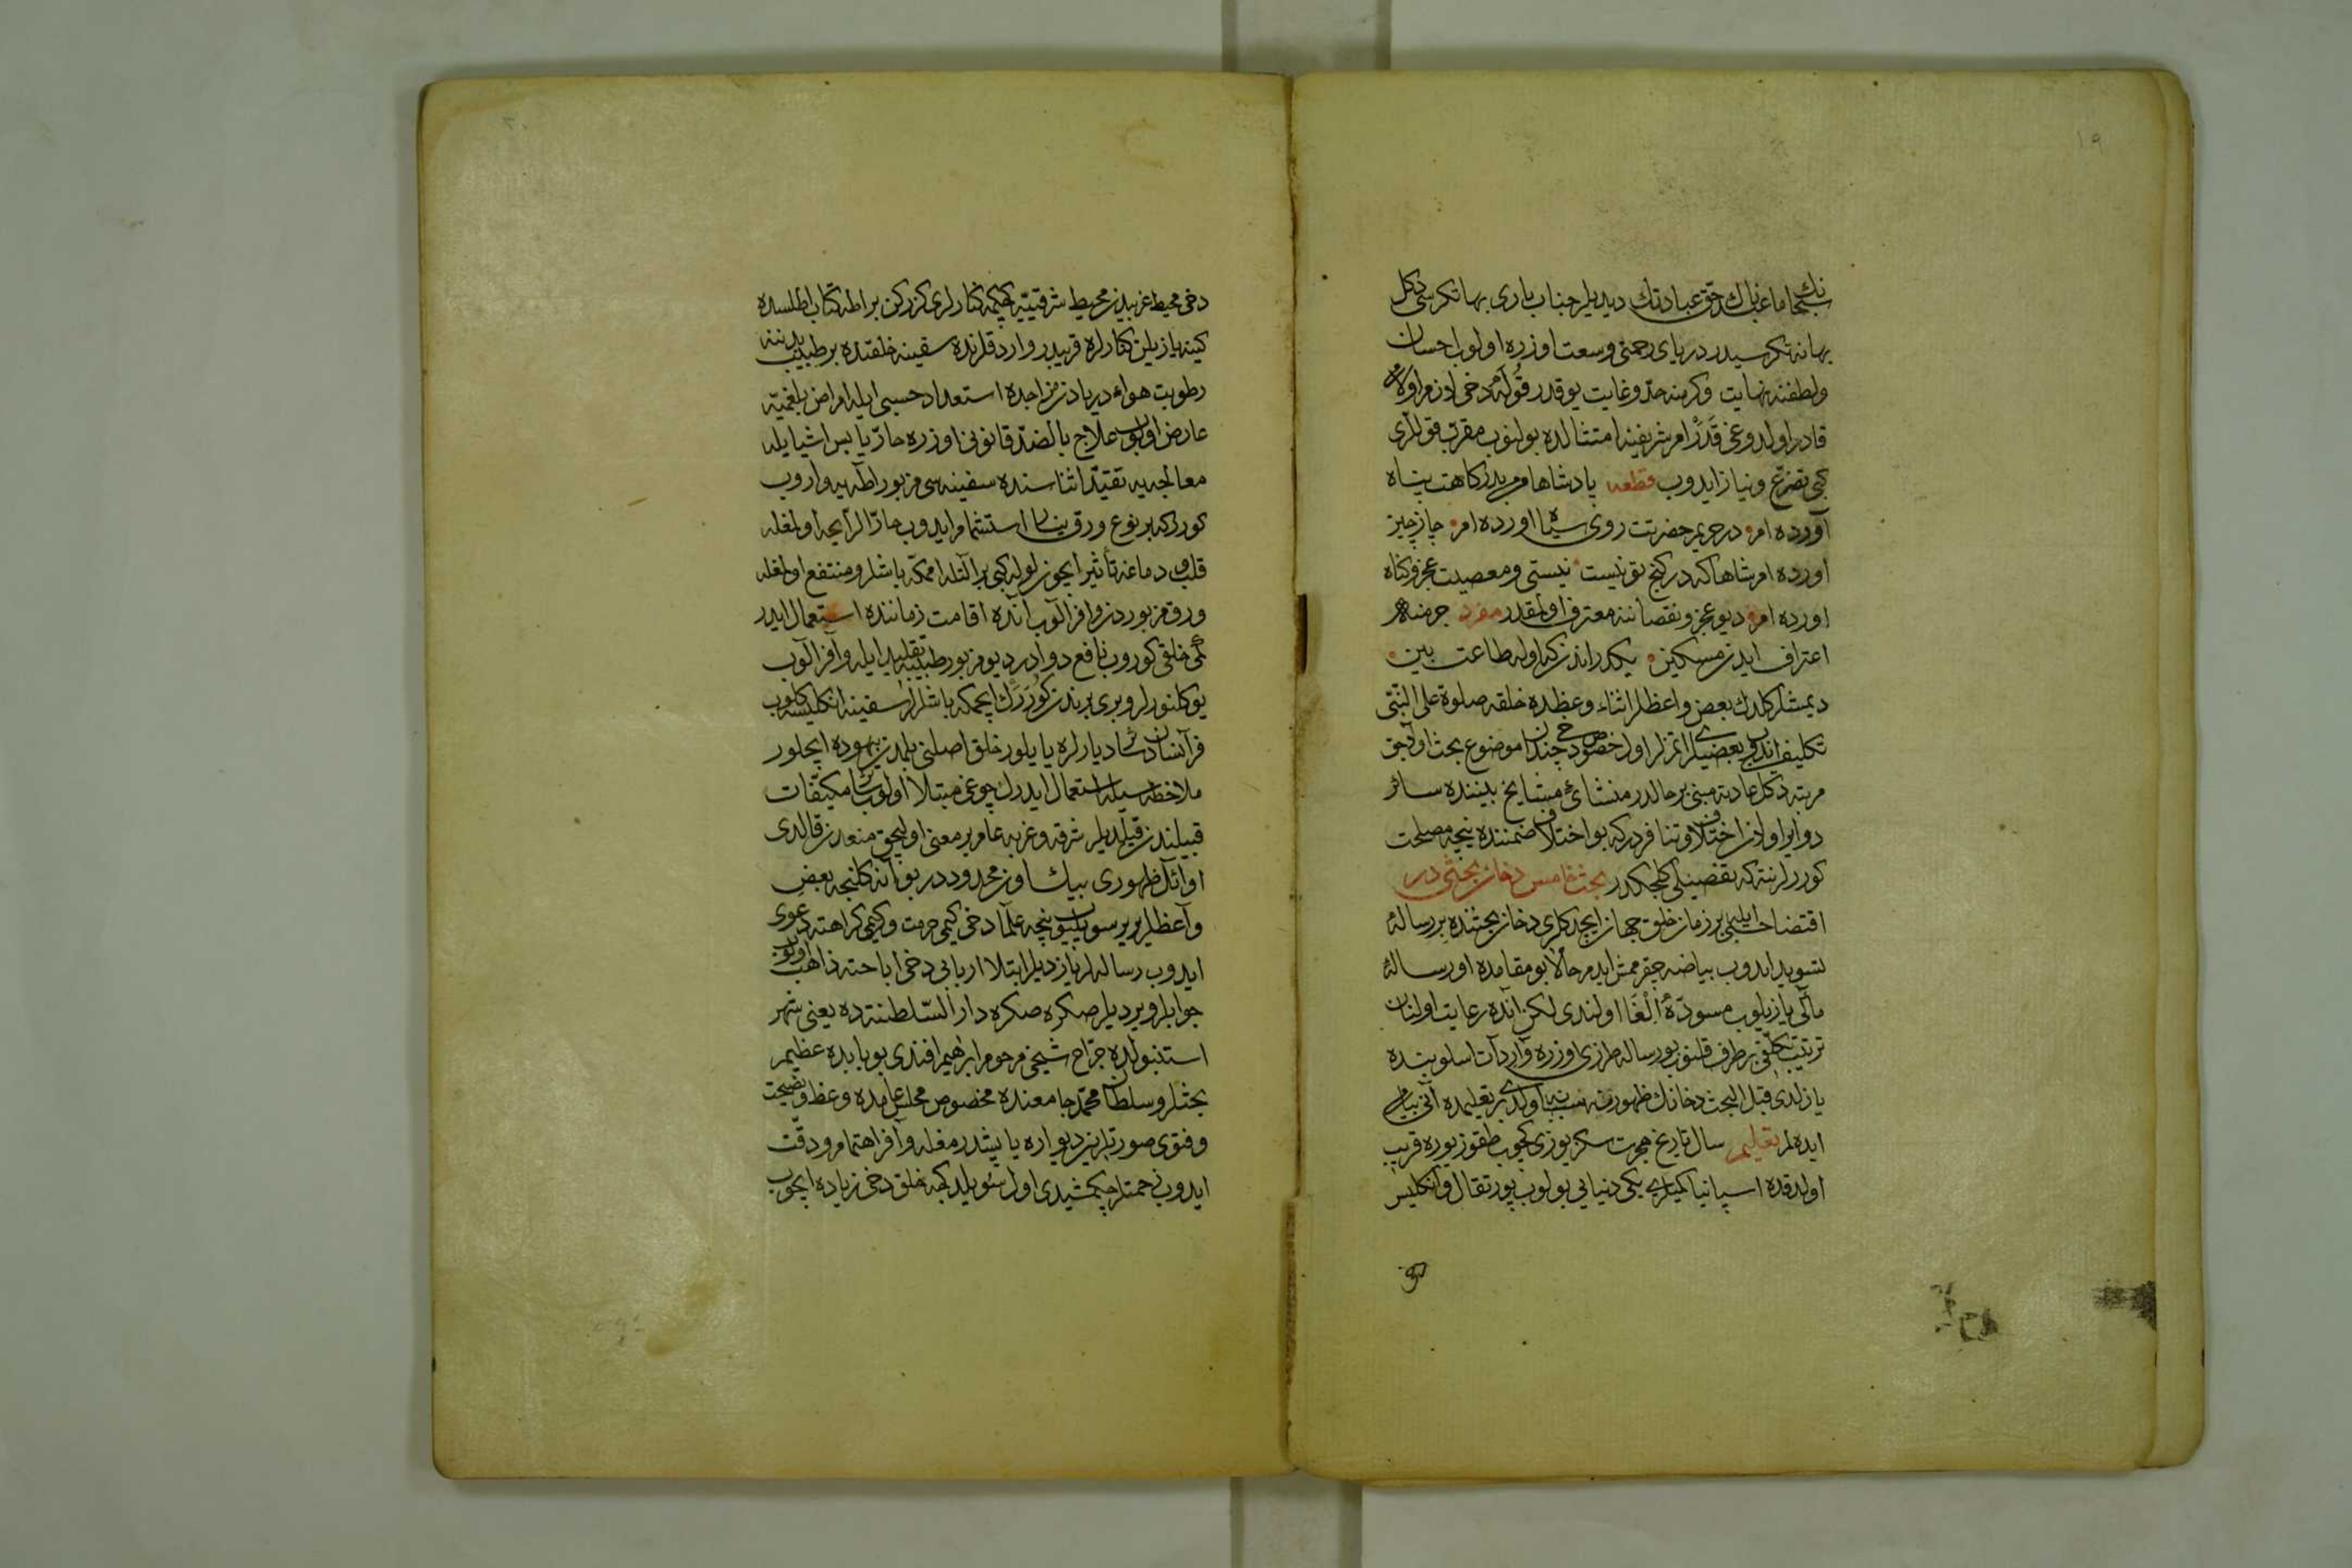 سبحانك ما عبدناك حق عبادتك ديديلر جناب باری بها تكری سی دكل
بهانه تكريسيدر دريای رحمتی وسعت اوزره اولوب احسان
ولطفنه نهايت وكرمنه حد وغايت يوقدر قوله دخی لازم اولان
قادر اولدوغی قدر امر شريفنه امتثالده بولنوب مقرب قوللری
كبی تضرع ونياز ايدوب قطعه پادشاها من بدركاهت پناه
آورده ام در حريم حضرتت روی سياه اورده ام چار چيز
اورده ام شاها كه در كنج تو نيست نيستی ومعصيت عجز وكناه
اورده ام ديو عجز ونقصاننه معترف اولمقدر مفرد جرمنه
اعتراف ايدن مسكين يكدر اندن كه اوله طاعت بين
ديمشلر كلدك بعض واعظلر اثناء وعظده خلقه صلوة علی النبی
تكليف ايدوب بعضيلر ايتمزلر اول خصوص دخی چندان موضوع بحث اوله جق
مرتبه دكل عادته مبنی بر حالدر منشائ مشايخ بيننده سائر
دواير اولان اختلاف وتنافردر كه بو اختلاف ضمننده نيجه مصلحت
كوررلر نته كه تفصيلی كلجكدر بحث خامس دخان بحثی در
اقتضا حسبی ايله بر زمان خلق جهان ايچدكلری دخان بحثنده بر رساله
تسويد ايدوب بياضه چقرممش ايدم حالا بو مقامده اور رساله
مآلی يازيلوب مسوده الغا اولندی لكن انده رعايت اولنان
ترتيب تكلفی بر طرف قلنوب بو رساله طرزی اوزره واردات اسلوبنده
يازلدی قبل البحث دخانك ظهورينه سبب نه اولدی بر تعليمده آنی بيان
ايده لم تعليم سال تاريخ هجرت سكز يوزی كچوب طقوز يوزه قريب
اولدقده اسپانيا كميلری يكی دنيايی بولوب پورتقال وانكليس
دخی
دخی محيط غربيدن محيط شرقيه كچمكه كنارلری كزركن بر اطه كتاب اطلسده
كينه يازيلن كنارلره قريبدر وارد قلرنده سفينه خلقنده بر طبيب بدننه
رطوبت هواء دريادن مزاجده استعداد حسبی ايله امراض بلغميه
عارض اولوب علاج بالضد قانونی اوزره حار يابس اشيا ايله
معالجه يه تقيد اثناسنده سفينه سی مزبور اطه يه واروب
كورر كه بر نوع ورق يانار استشمام ايدوب حار الرايحه اولمغله
قلب ودماغه تأثير ايچون لوله كبی بر آلتله اممكه باشلر ومنتفع اولمغله
ورق مزبوردن وافر آلوب انده اقامت زماننده استعمال ايدر
كمی خلقی كوروب نافع دوادر ديو مزبور طبيبه تقليد ايله وافر آلوب
يوكلنورلر وبری برندن كوررك ايچمكه باشلرلر سفينه انكليسه كلوب
فرآنسادن سائر ديارلره يايلور خلق اصلنی بلمدين بيهوده ايچلور
ملاحظه سيله استعمال ايدرك چوغی مبتلا اولوب سائر مكيفات
قبيلندن قيلديلر شرقه وغربه عام بر معنی اوليجق منعدن قالدی
اوائل ظهوری بيك اون حدودندر بو آنه كلنجه بعض
واعظلر برر سويليوب نيجه علما دخی كيمی حرمت وكيمی كراهته دعوی
ايدوب رساله لر يازديلر ابتلا اربابی دخی اباحته ذاهب اولوب
جوابلر ويرديلر صكره صكره دار السلطننه ده يعنی شهر
استنبولده جراح شيخی مرحوم ابرهيم افندی بو بابده عظيم
بحثلر وسلطان محمد جامعنده مخصوص مجلس عامده وعظ ونصيحت
وفتوی صورتلرين ديواره ياپشدرمغله وافر اهتمام ودقت
ايدوب زحمتلر چكمشيدی اول سويلدكجه خلق دخی زياده ايچوب